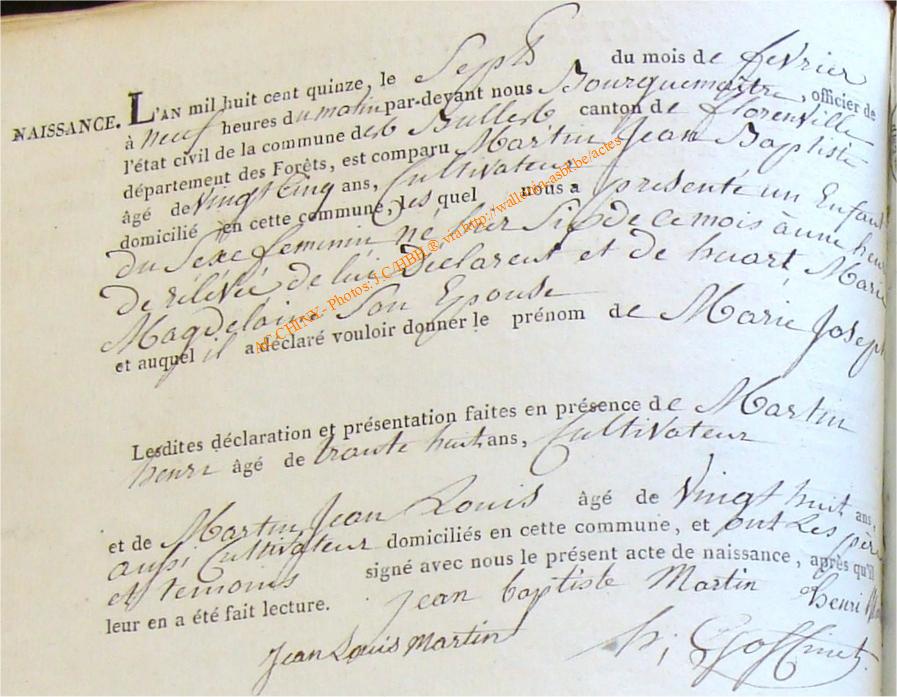 NAISSANCE. L'AN mil huit cent quinze, le Sept du mois de fevrier
à neuf heures du matin par-devant nous Bourguemaitre, officier de
l'état civil de la commune des Bulles canton de florenville
département des Forêts, est comparu Martin Jean Baptiste
âgé de vingt Cinq ans, Cultivateur
domicilié en cette commune, les quel nous a presenté un Enfant
du Sexe feminin né hier Six de ce mois à une heure
de rélévée de lui Déclarent et de huart Marie
Magdelaine Son Epouse
et auquel il a déclaré vouloir donner le prénom de Marie Joseph
Lesdites déclaration et présentation faites en présence de Martin
henri âgé de trante huit ans, Cultivateur
et de Martin Jean Louis âgé de Vingt huit ans,
aussi Cultivateur domiciliés en cette commune, et ont Les père
et temoins signé avec nous le présent acte de naissance, après qu'il
leur en a été fait lecture. jean baptiste Martin henri
Jean Louis Martin h; Goffinet.
AC CHINY - Photos: J.C/HBH.® via http://wallonia-asbl.be/actes